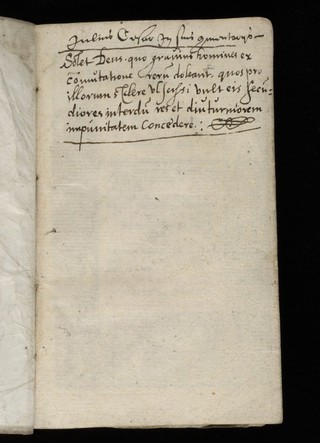 Julius Cesar In suis comentarijs
Solet Deus, quo gravius homines ex
Comutatione reru doleant, quos pro
illorum scelere ulscisci vult eis secu-
diores interdu res et diuturniorem
impunitatem Concedere: